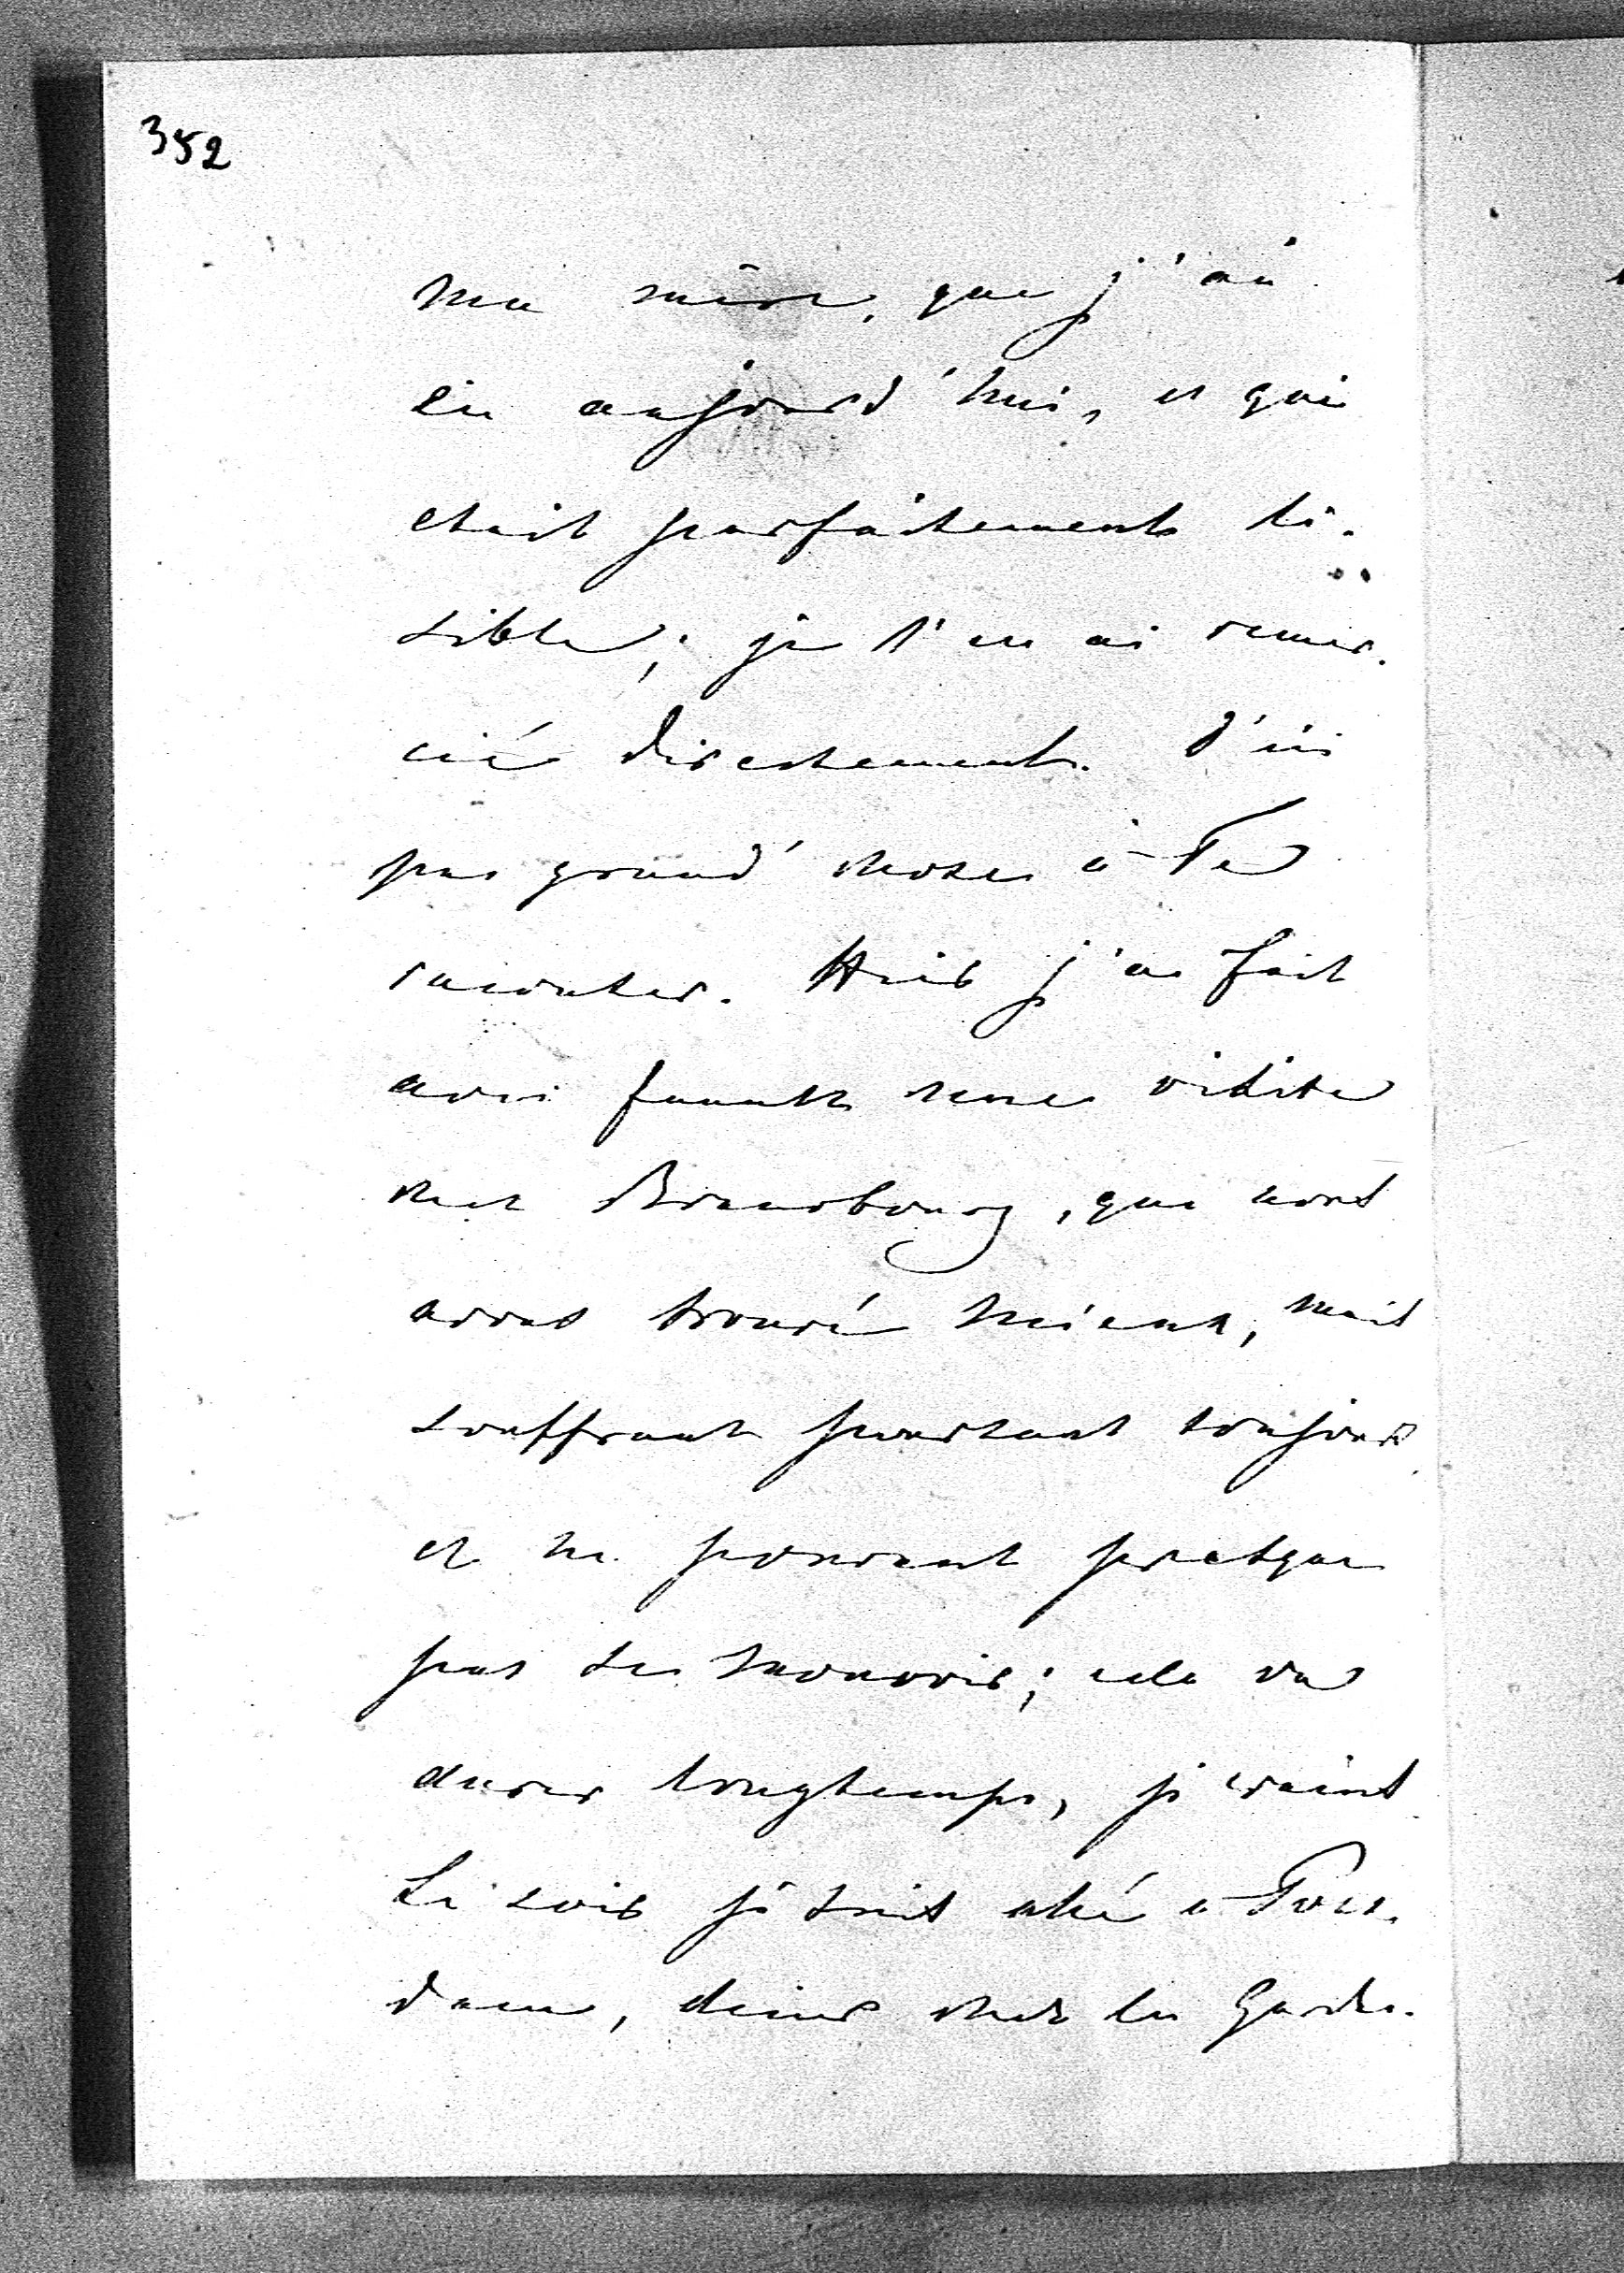 352
ma mère, que j'ai
eu aujourd'hui, et qui
etait parfaitement li-
sible; je l'en ai remer-
cié directement. J'ai
pas grand' chose à Te
raconter. Hier j'ai fait
avec une visite
chez , que nous
avons trouvé mieux, mais
souffrant pourtant toujours
et ne pouvant presque
pas se mouvoir; cela va
durer longtemps, je crains
Le soir je suis allé à Pots-
dam, diner chez les Garde-